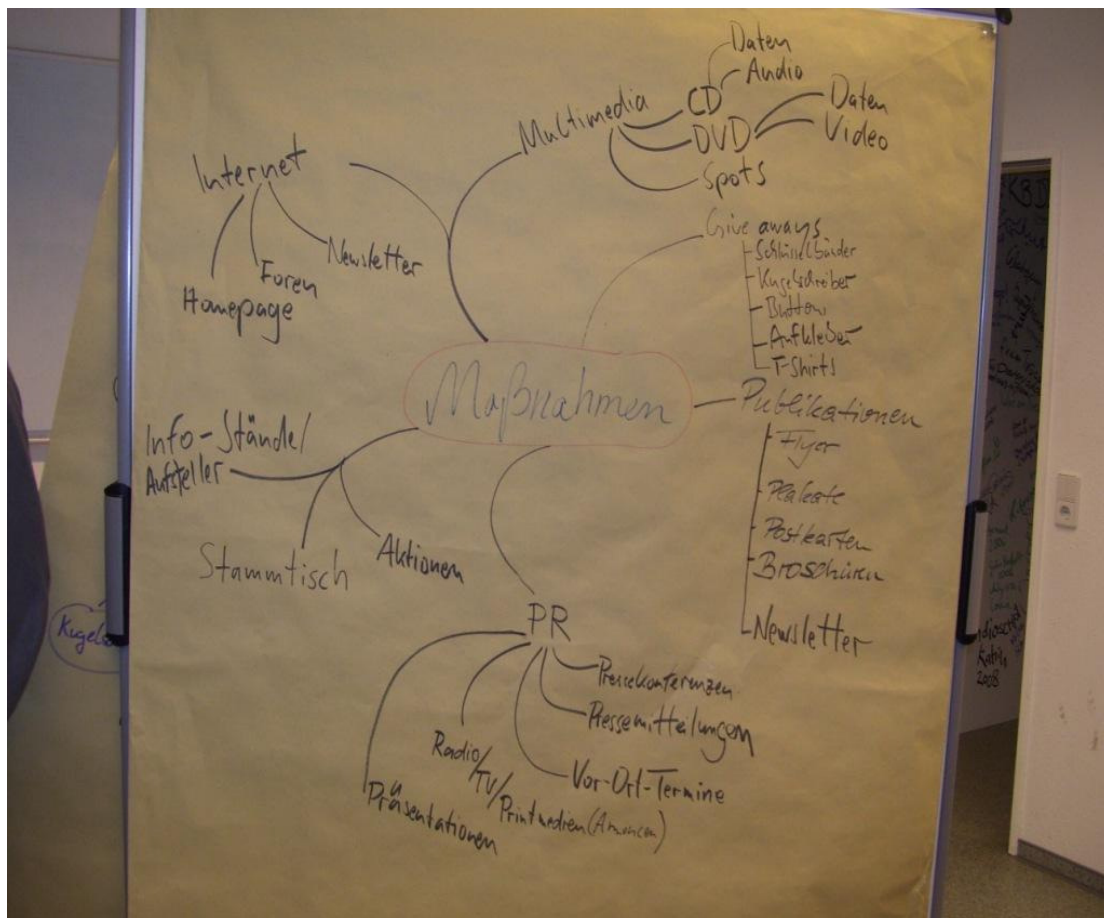 Daten
Audio
Multimedia
CD
DVD
Daten
Video
Spots
Internet
Newsletter
Foren
Homepage
Give aways
Schlüsselbänder
Kugelschreiber
Buttons
Aufkleber
T-Shirts
Maßnahmen
Publikationen
Flyer
Plakate
Postkarten
Broschüren
Newsletter
Info-Stände/
Aufsteller
Stammtisch
Aktionen
PR
Pressekonferenzen
Pressemitteilungen
Vor-Ort-Termine
Radio/
TV/
Printmedien (Annoncen)
Präsentationen
Katrin
2008